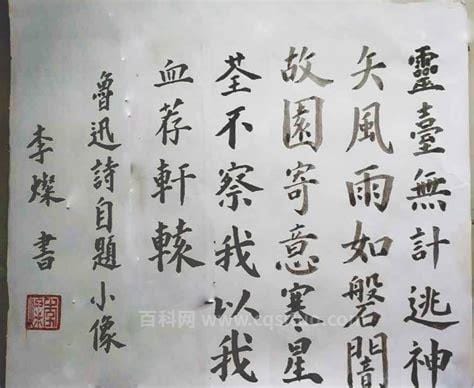 靈臺無計逃神
矢風雨如磐闇
故園寄意寒星
荃不察我以我
血荐軒轅
魯迅詩自題小像
李燦書
百科网